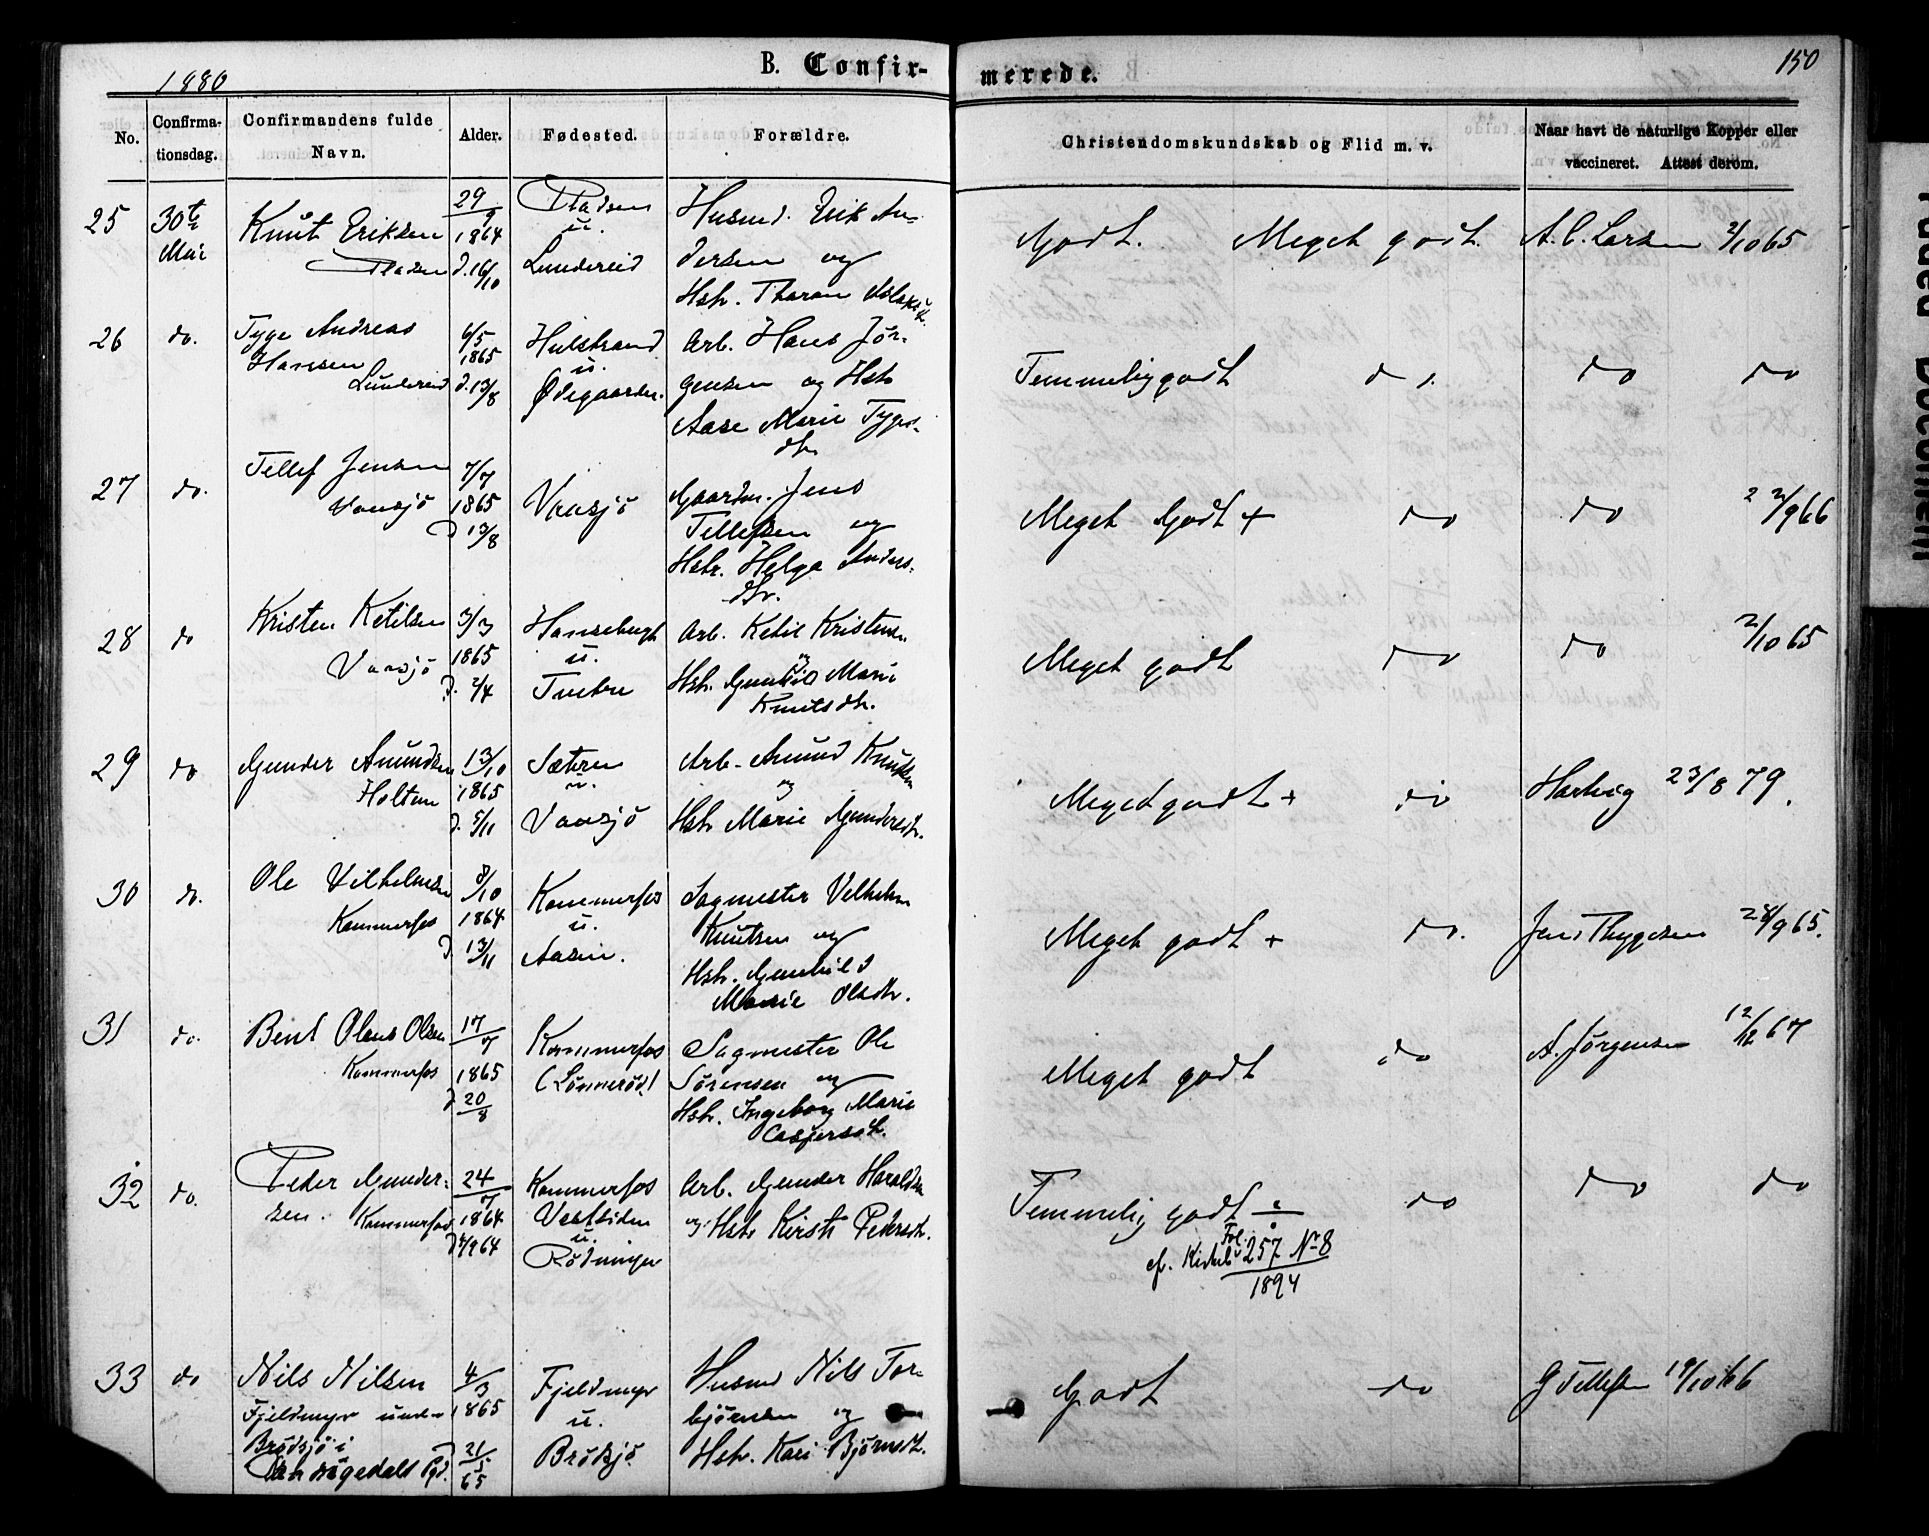 1880
B. Confir-
merede.
150
No.
Confirma-
tionsdag.
Confirmandens fulde
Navn.
Alder.
Fødested.
Forældre.
Christendomskundskab og Flid m. v.
Naar havt de naturlige Kopper eller
vaccineret. Attest derom.
25
30te
Mai
Knut Eriksen
29
9
1864
d. 16/10
u.
Lundereid
Husmd. Erik An-
dersen og
Hstr. Tharan
Godt.
Meget godt.
A. C. Larsen 2/10 65
26
do.
Tyge Andreas
Hansen
Lundereid
6/5
1865
d. 13/8
Hulstrand
u.
Ødegaarden.
Arb. Hans Jør-
gensen og Hstr
Aase Marie Tyges-
dtr
Temmelig godt
do.
do
do
27
do.
Tellef Jensen
Vansjö
7/7
1865
d 13/8
Vansjö
Gaardm. Jens
Tellefsen og
Hstr. Helga Anders-
dtr.
Meget Godt +
do
do
22/9 66
28
do
Kristen Ketilsen
Vansjö
3/3
1865
d. 2/4
u.
Tveten
Arb. Ketil Kristens.
og
Hstr. Gunhild Marie
Knutsdtr.
Meget godt
do
do
2/10 65
29
do
Gunder Amundsen
Holtan
13/10
1865
d. 5/11
Sæteren
u.
Vansjö
Arb. Amund Knutsen
og
Hstr Marie Gundersdtr.
Meget godt +
do
Hartvig 23/8 79.
30
do.
Ole Vilhelmsen
Kammerfos
8/10
1864
d. 13/11
Kammerfos
u.
Aasen.
Sagmester Velhelm
Knutsen og
Hstr. Gunhild
Marie Olsdtr.
Meget godt +
do.
Jens Thygesen 28/9 65.
31
do.
Bent Olaus Olsen
Kammerfos
17
7
1865
d 20
8
Kammerfos
(Lønnerød)
Sagmester Ole
Sørensen og
Hstr. Ingeborg Marie
Caspersdtr.
Meget godt
do
A. Jørgensen 12/12 67
32
do.
Peder Gunder-
sen.
Kammerfos
24
7
1864
Kammerfos
Vestsiden
u.
Rödmyr
Arb. Gunder Haraldsen
og Hstr Kirsti Pedersdtr.
Temmelig godt
do
do
do
cfr. Kirkeb Fol. 257 No 8
1894
33
do
Nils Nilsen
Fjeldmyr under
Brødsjø i
Drangedals Pgd.
4/3
1865
21
5
65
Fjeldmyr
u.
Brødsjø
Husmd Nils Tor-
bjørnsen og
Hstr. Kari Bjørnsdtr.
Godt
do
G Tellefsen 19/10 66